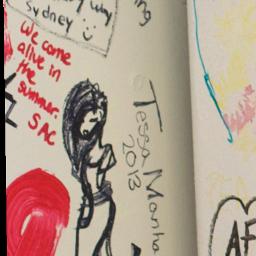 Way
Sydney
We come
alive in
the
summer.
SAC
Tessa Manha
2013
ng
AF